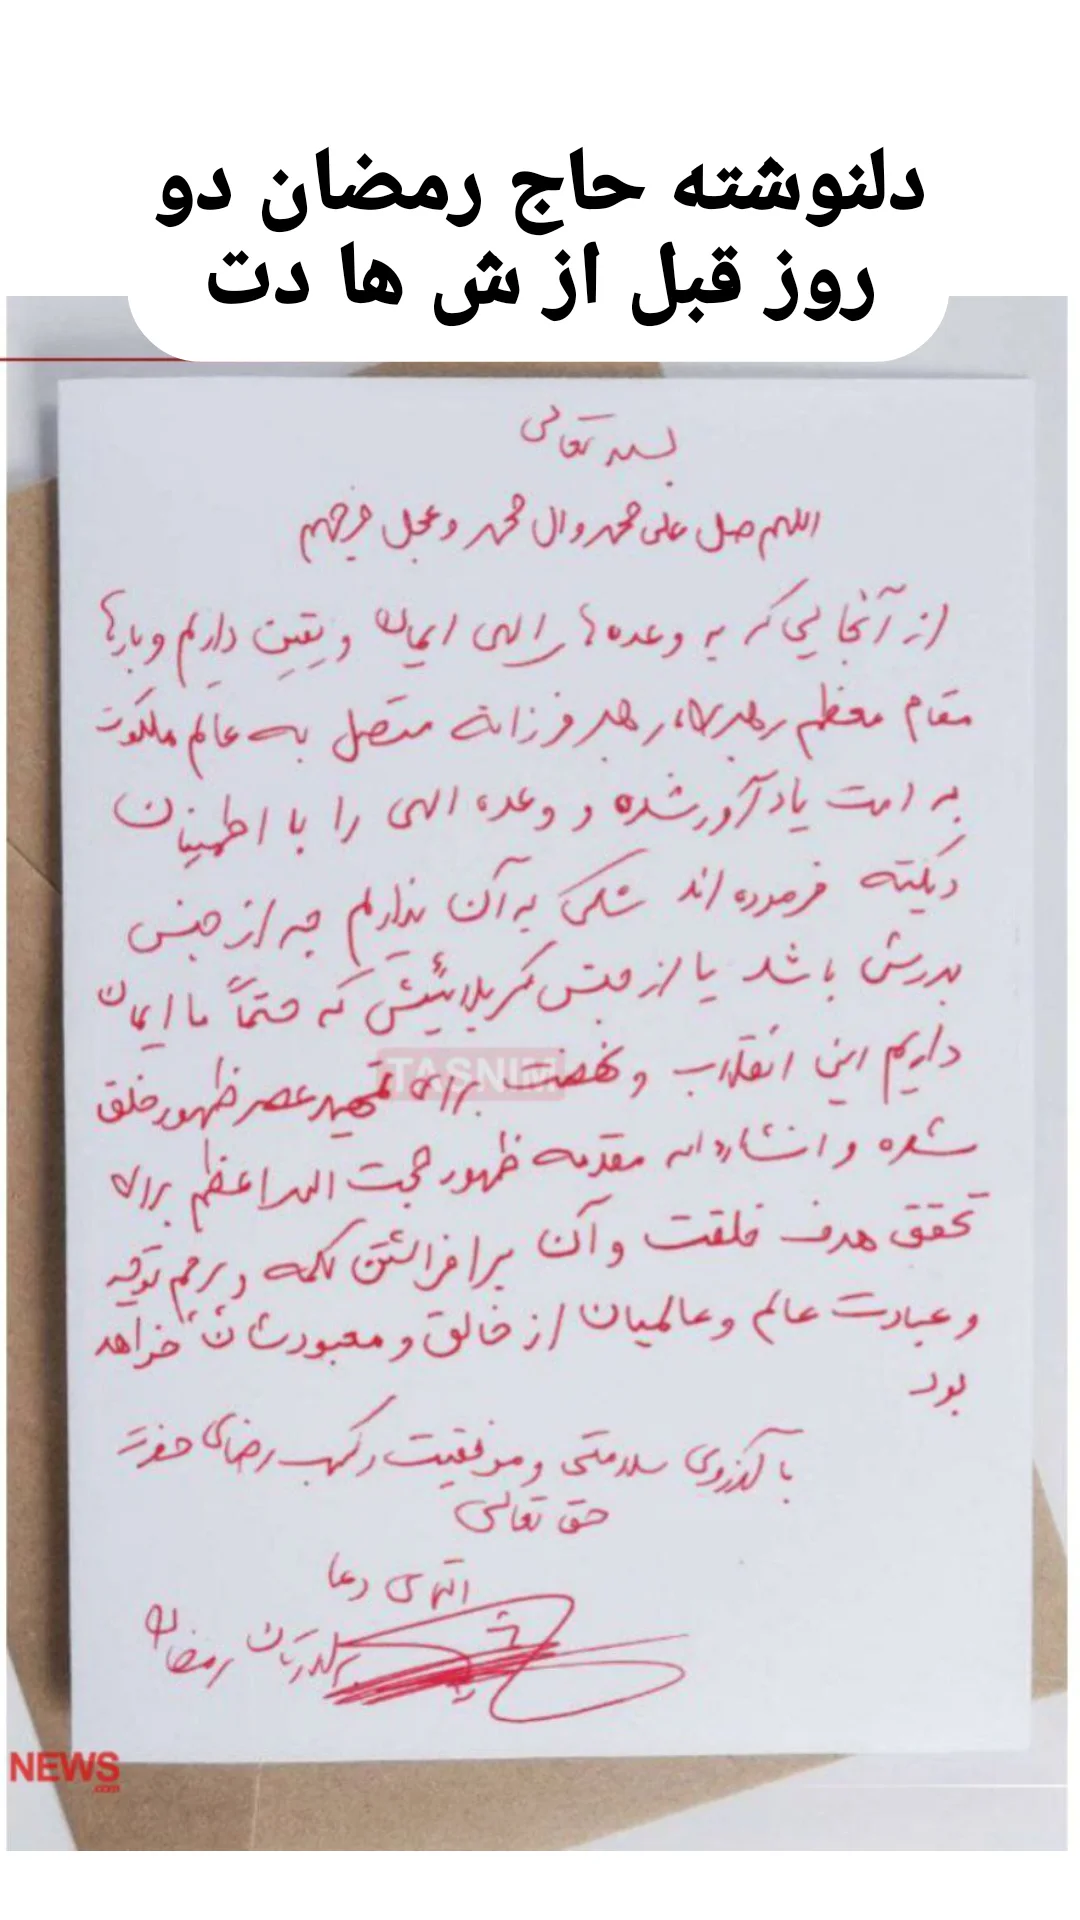 دلنوشته حاج رمضان دو
روز قبل از ش ها دت
بسمه تعالی
اللهم صل علی محمد و ال محمد و عجل فرجهم
از آنجایی که به وعده های الهی ایمان و یقین داریم و بارها
مقام معظم رهبری، رهبر فرزانه متصل به عالم ملکوت
به امت یادآور شده و وعده الهی را با اطمینان
فرموده اند شکی به آن نداریم چه از جنس
بدرش باشد یا از جنس کربلائیش که حتماً ما ایمان
داریم این انقلاب و نهضت برای تمهید عصر ظهور خلق
شده و انشاءاله مقدمه ظهور حجت اله اعظم برای
تحقق هدف خلقت و آن برافراشتن کلمه و پرچم توحید
و عبادت عالم و عالمیان از خالق و معبودشان خواهد
بود
با آرزوی سلامتی و موفقیت و کسب رضای حضرت
حق تعالی
التماس دعا
برادرتان رمضان
TASNIM
NEWS
.com